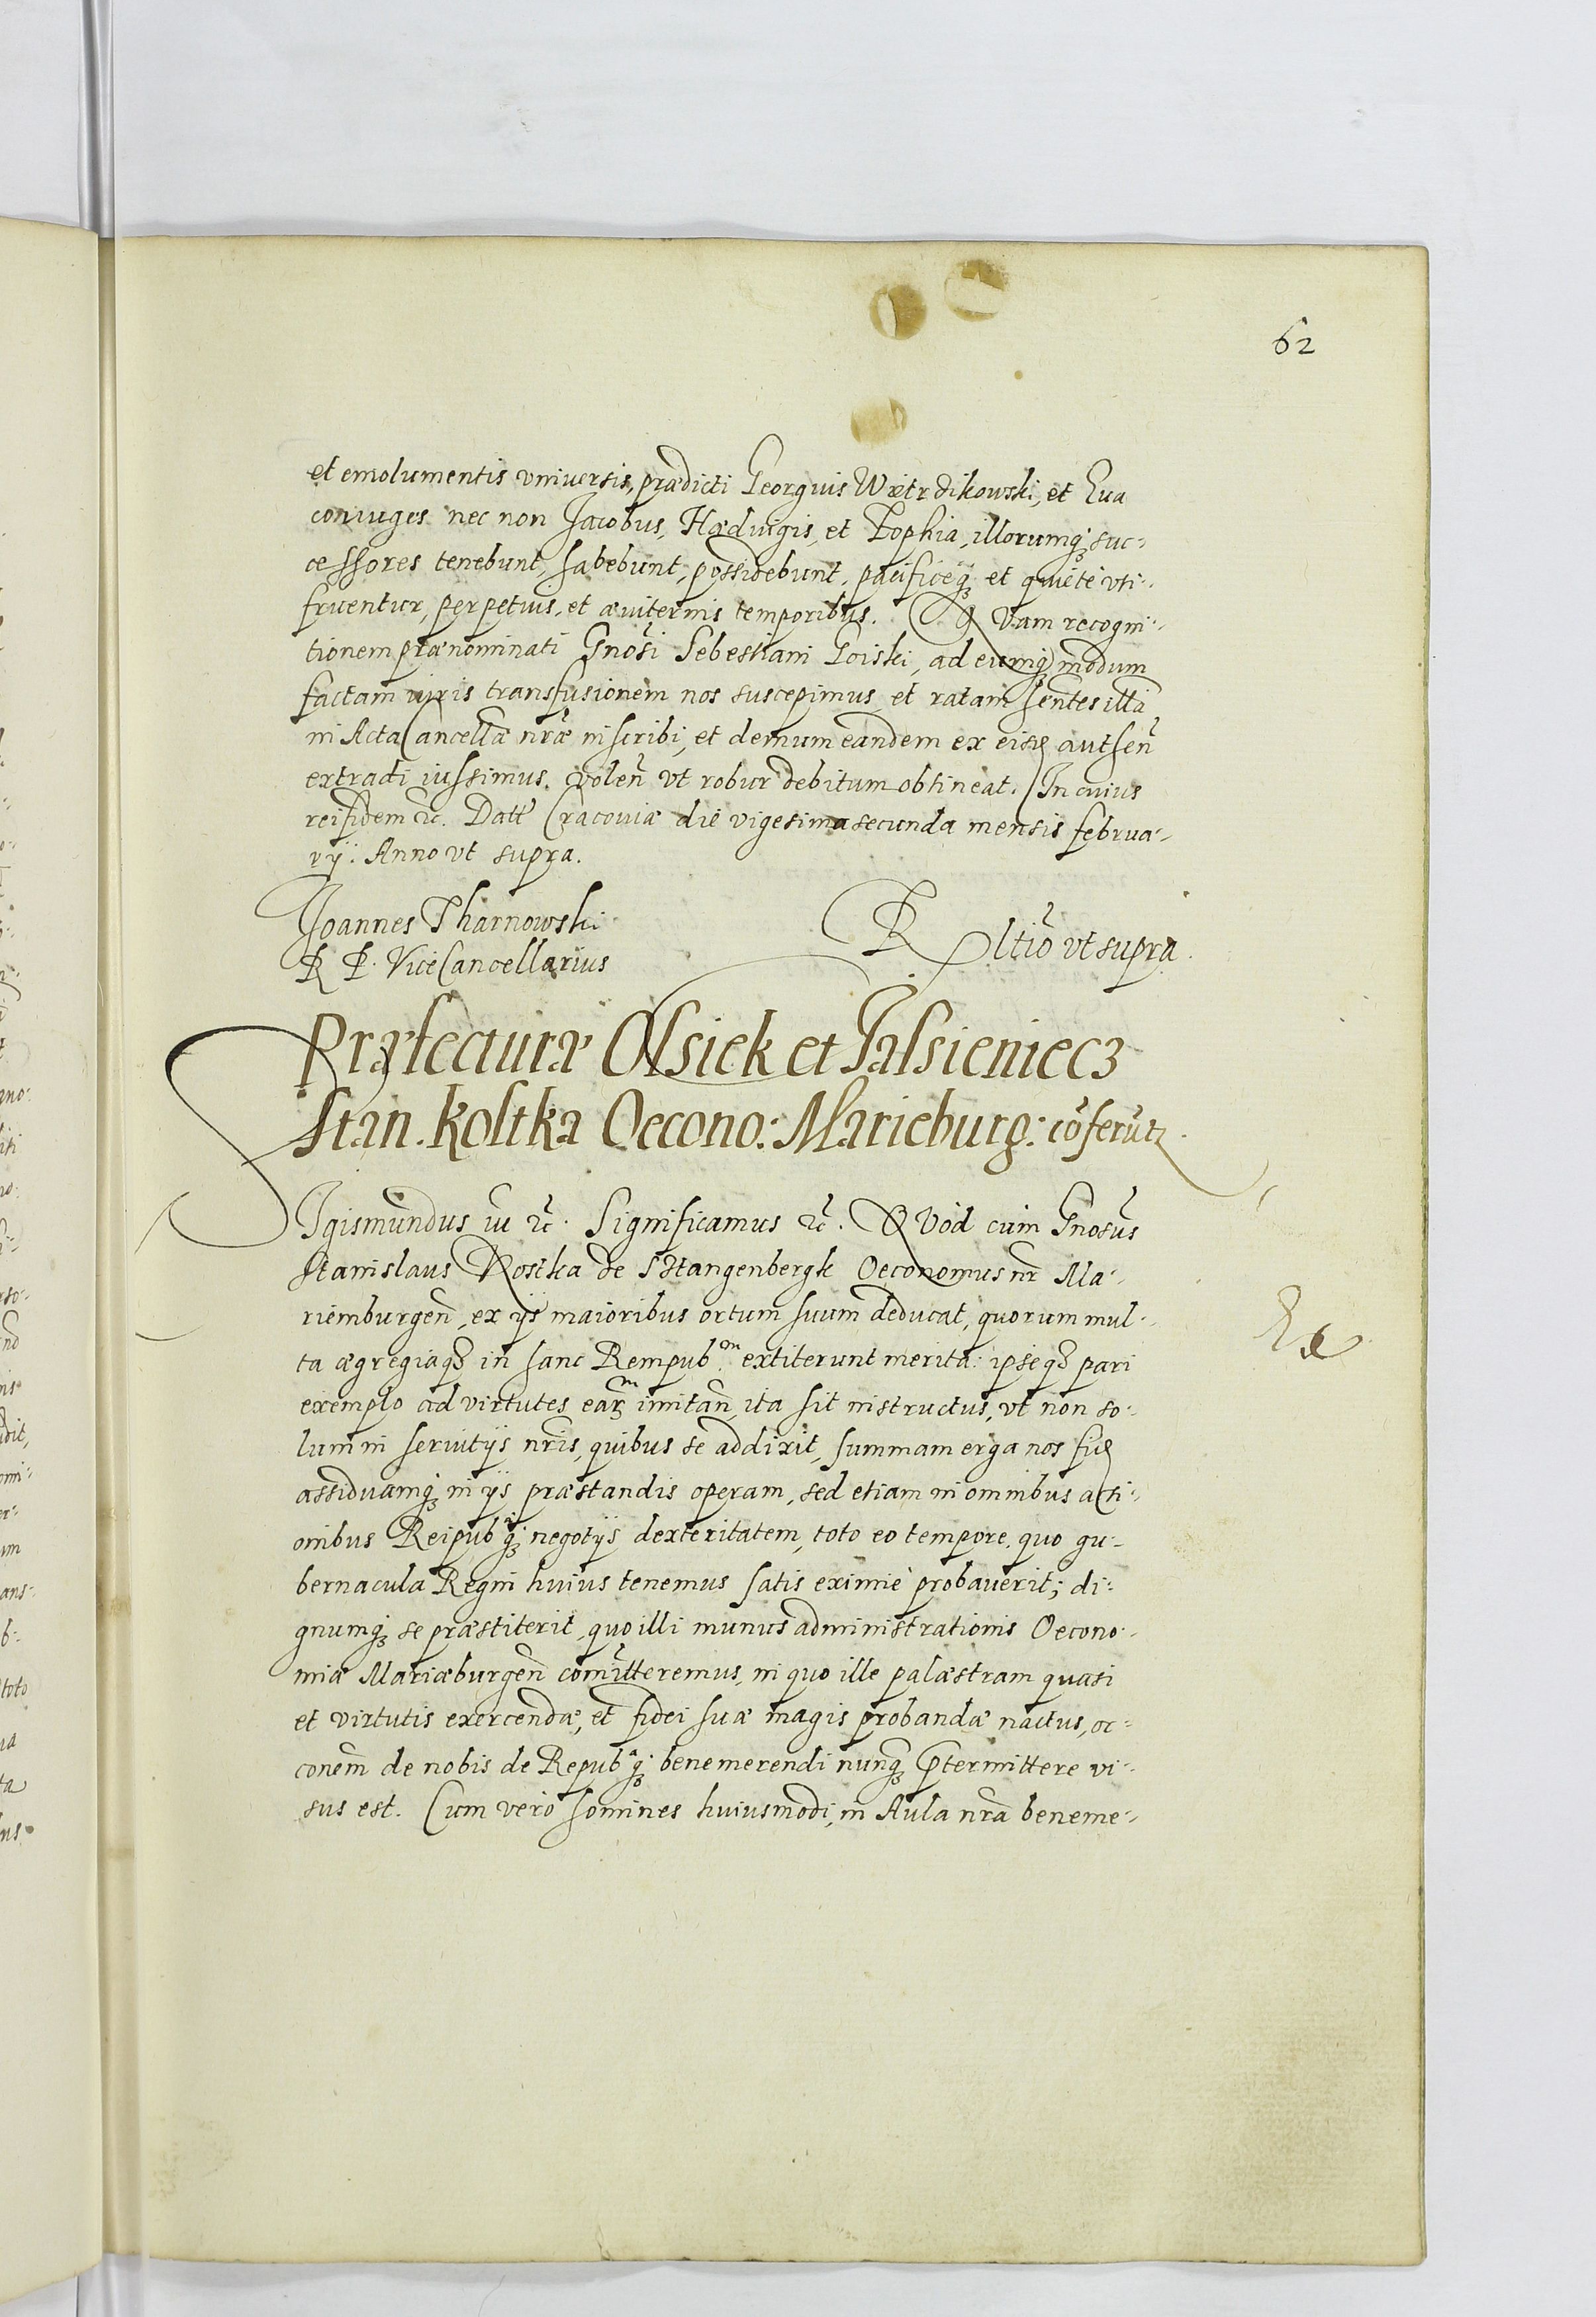 62
et emolumentis vniuersis, prædicti Georguis Wætrdikowski, et Eua
coniuges nec non Jacobus, Hædwigis, et Zophia, illorumq̃ suc-
cessores tenebunt, habebunt, possidebunt, pacificeq̃ et quietè vti-
fruentur, perpetuis, et æuiternis temporibus. QVam recogni-
tionem prænominati Gnosi Sebestiani Goiski, ad eumq̃ modum
factam iuris transfusionem nos suscepimus et ratam hentes illã
in Acta Cancellæ nræ inscribi, et demum eandem ex eisd authen
extradi iussimus. volen vt robur debitum obtineat. In cuius
rei fidem &c. Datt Cracouiæ die vigesima secunda mensis februa-
rÿ. Anno vt supra.
Joannes Tharnowski
R P. ViceCancellarius
Rltio vt supra.
Præfecturæ Ossiek et Jassieniecz
Stan. Kostka Oecono: Marieburg: cõferũtz
SIgismundus iii &c. Significamus &c. QVòd cùm Gnosus
Stanislaus Kostka de Sttangenbergk Oeconomus nr Ma-
riemburgen, ex ÿs maioribus ortum suum deducat, quorum mul-
ta ægregiaq̃ in hanc Rempub.em extiterunt merita: ipseq̃ pari
exemplo ad virtutes earm imitan, ita sit instructus, vt non so-
lum in seruitÿs nris, quibus se addixit, summam erga nos fid
assiduamq̃ in ÿs præstandis operam, sed etiam in omnibus acti-
onibus Reipub.q̃ negotÿs dexteritatem, toto eo tempore, quo gu-
bernacula Regni huius tenemus satis eximiè probauerit; di-
gnumq̃ se præstiterit, quo illi munus administrationis Oecono-
miæ Mariæburgen comitteremus, in quo ille palæstram quasi
et virtutis exercendæ, et fidei suæ magis probandæ nactus, oc-
conem de nobis de Repub.q̃ benemerendi nunq̃ prtermittere vi-
sus est. Cum verò homines huiusmodi, in Aula nra beneme-